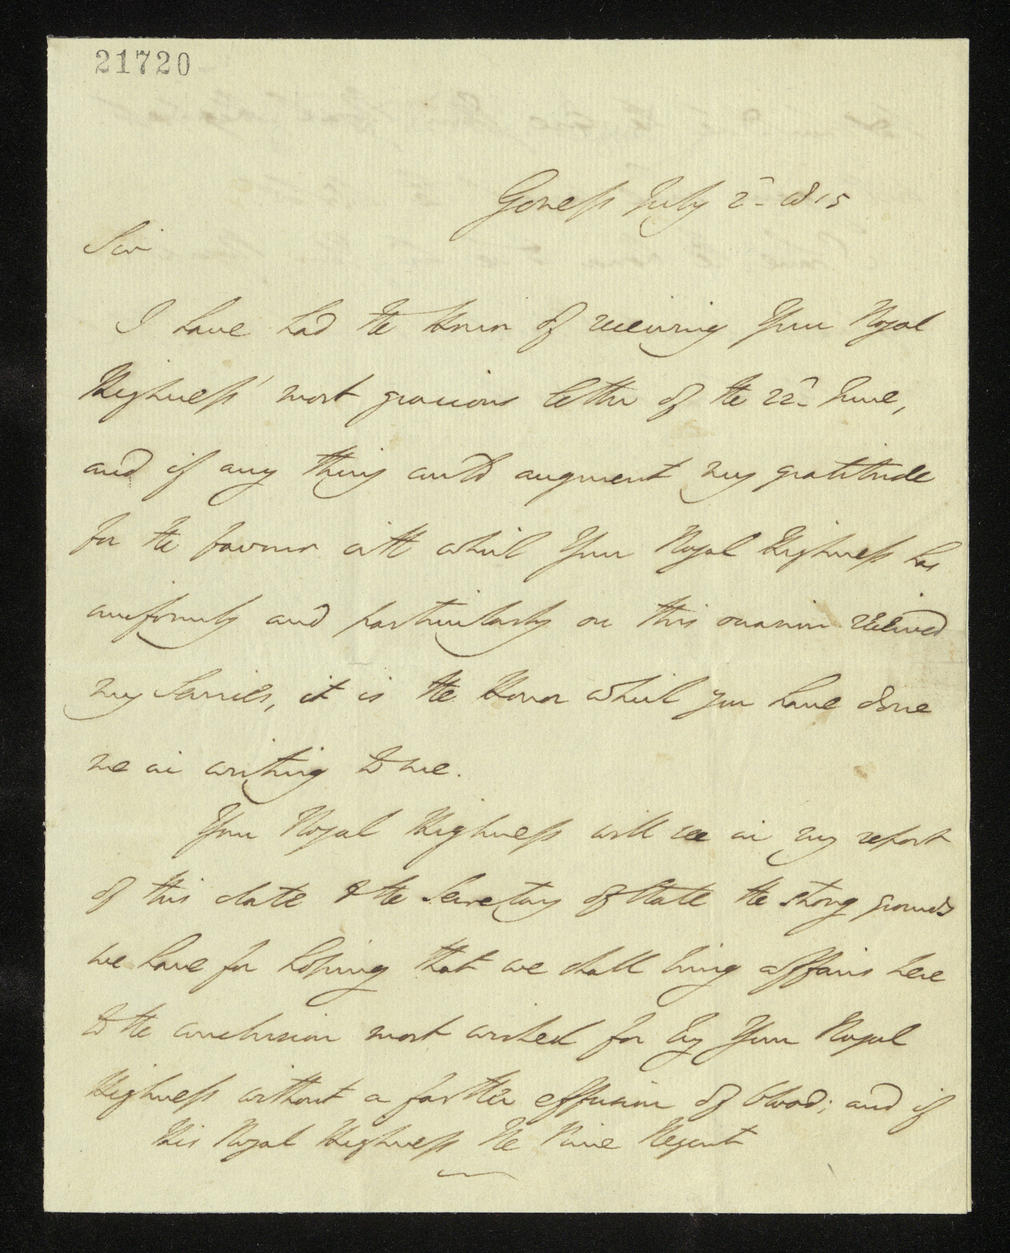 21720
Goness July 2d. 1815
Sir
I have had the Honor of receiving Your Royal
Highness' most gracious letter of the 22d. June,
and if any thing could augment my gratitude
for the favour with which Your Royal Highness has
uniformly and particularly on this occasion received
my Services, it is the Honor which you have done
me in writing to me.
Your Royal Highness will see in my report
of this date to the Secretary of State the strong grounds
we have for hoping that we shall bring affairs here
to the conclusion most wished for by Your Royal
Highness without a farther effusion of blood; and if
His Royal Highness The Prince Regent